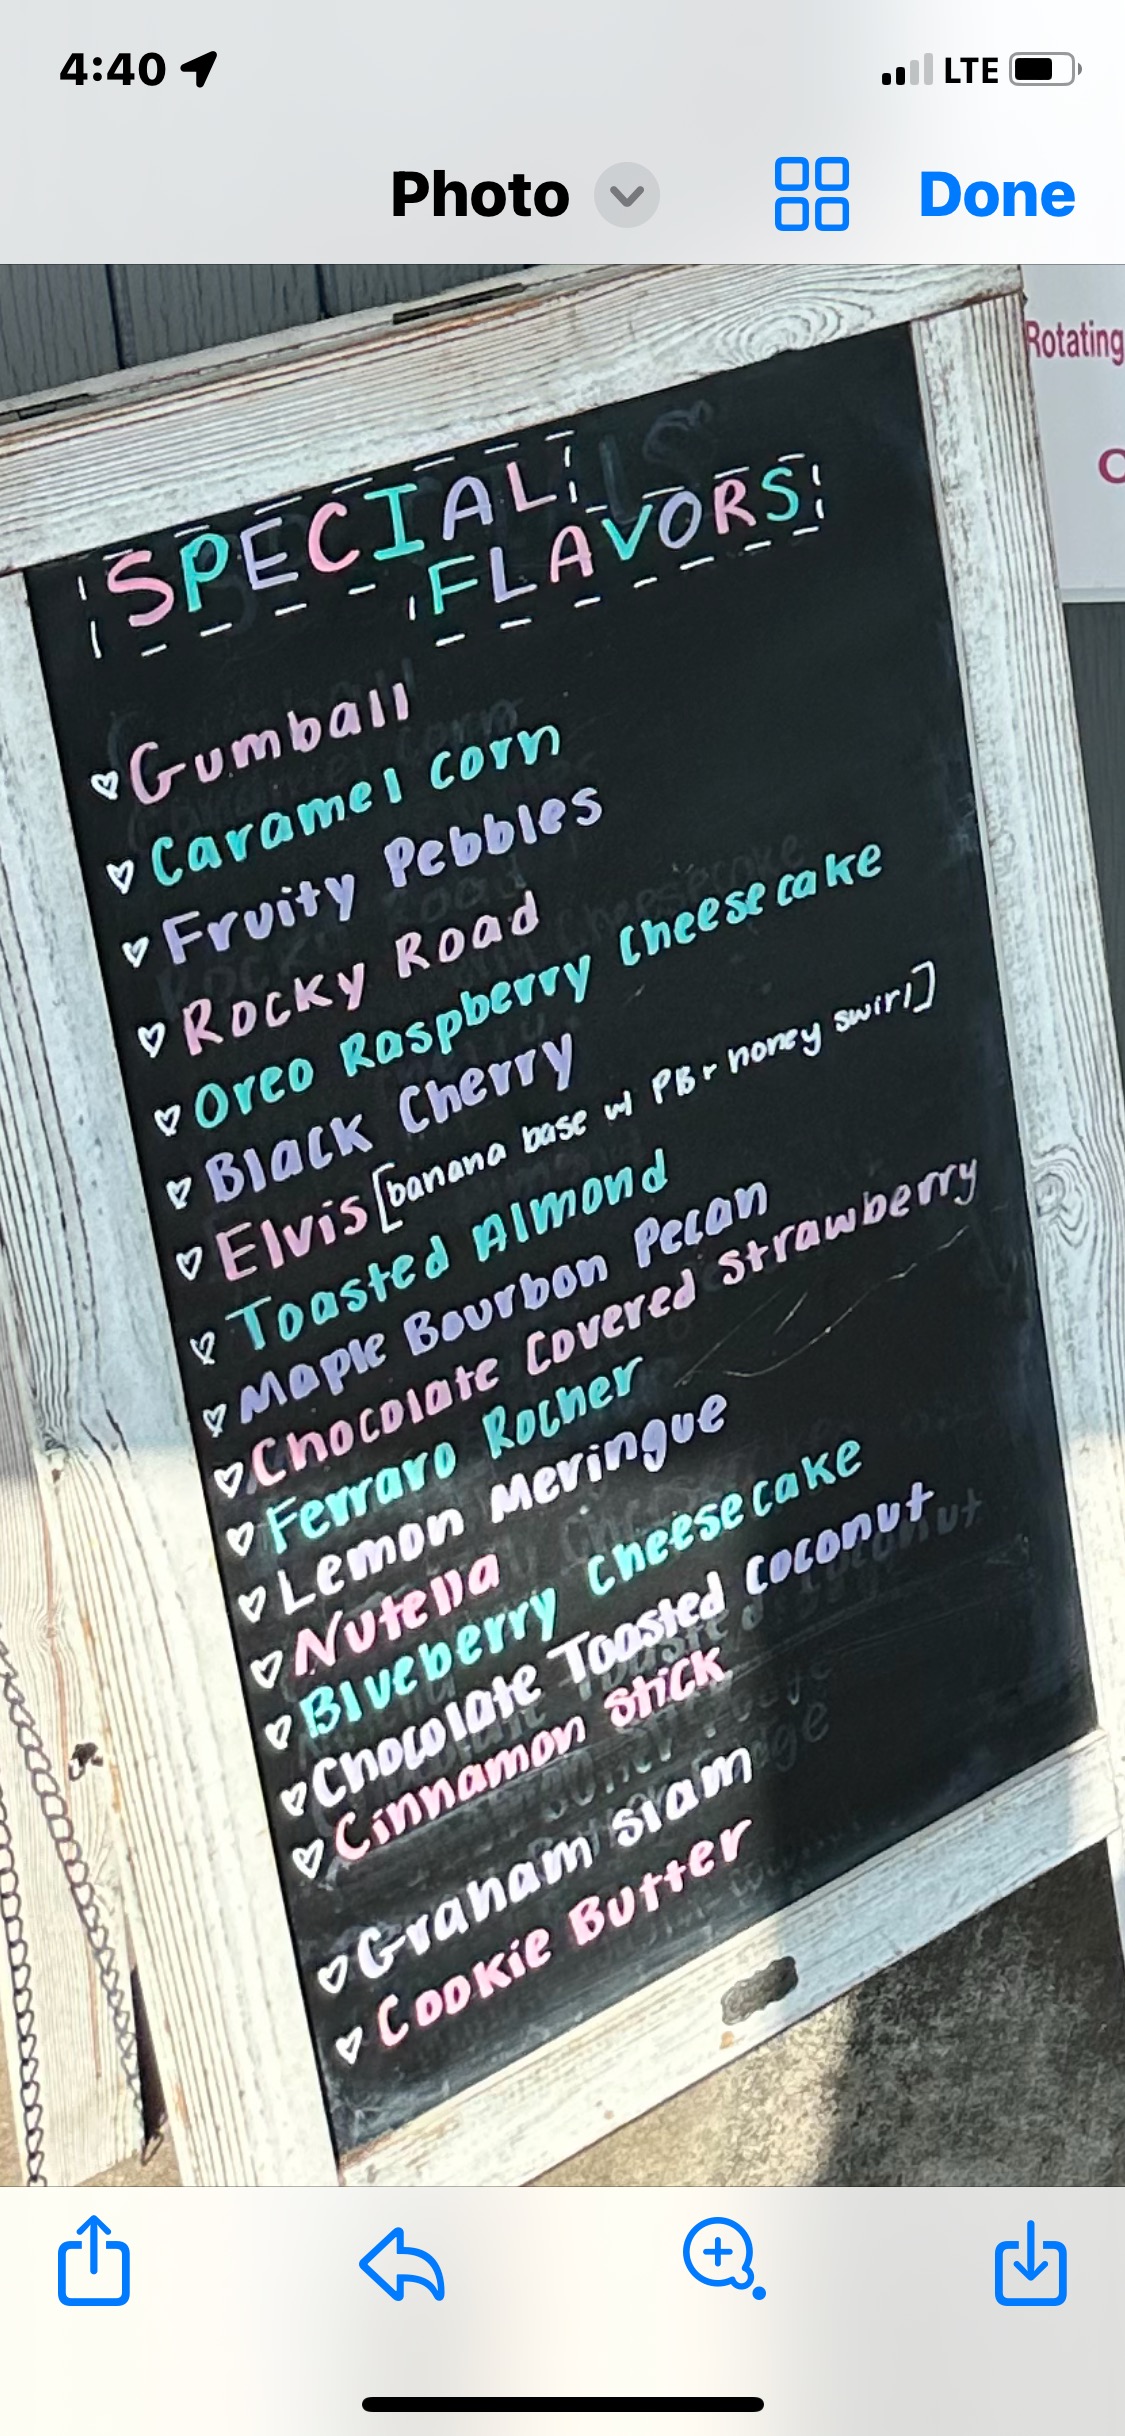 4:40 LTE
Photo Done
Rotating
SPECIAL
FLAVORS
Gumball
Caramel corn
Fruity Pebbles
Rocky Road
Oreo Raspberry Cheesecake
Black Cherry
Elvis [banana base w/ PB + honey swirl]
Toasted Almond
Maple Bourbon Pecan
Chocolate Covered Strawberry
Ferraro Rocher
Lemon Meringue
Nutella
Blueberry Cheesecake
Chocolate Toasted Coconut
Cinnamon Stick
Graham Slam
Cookie Butter